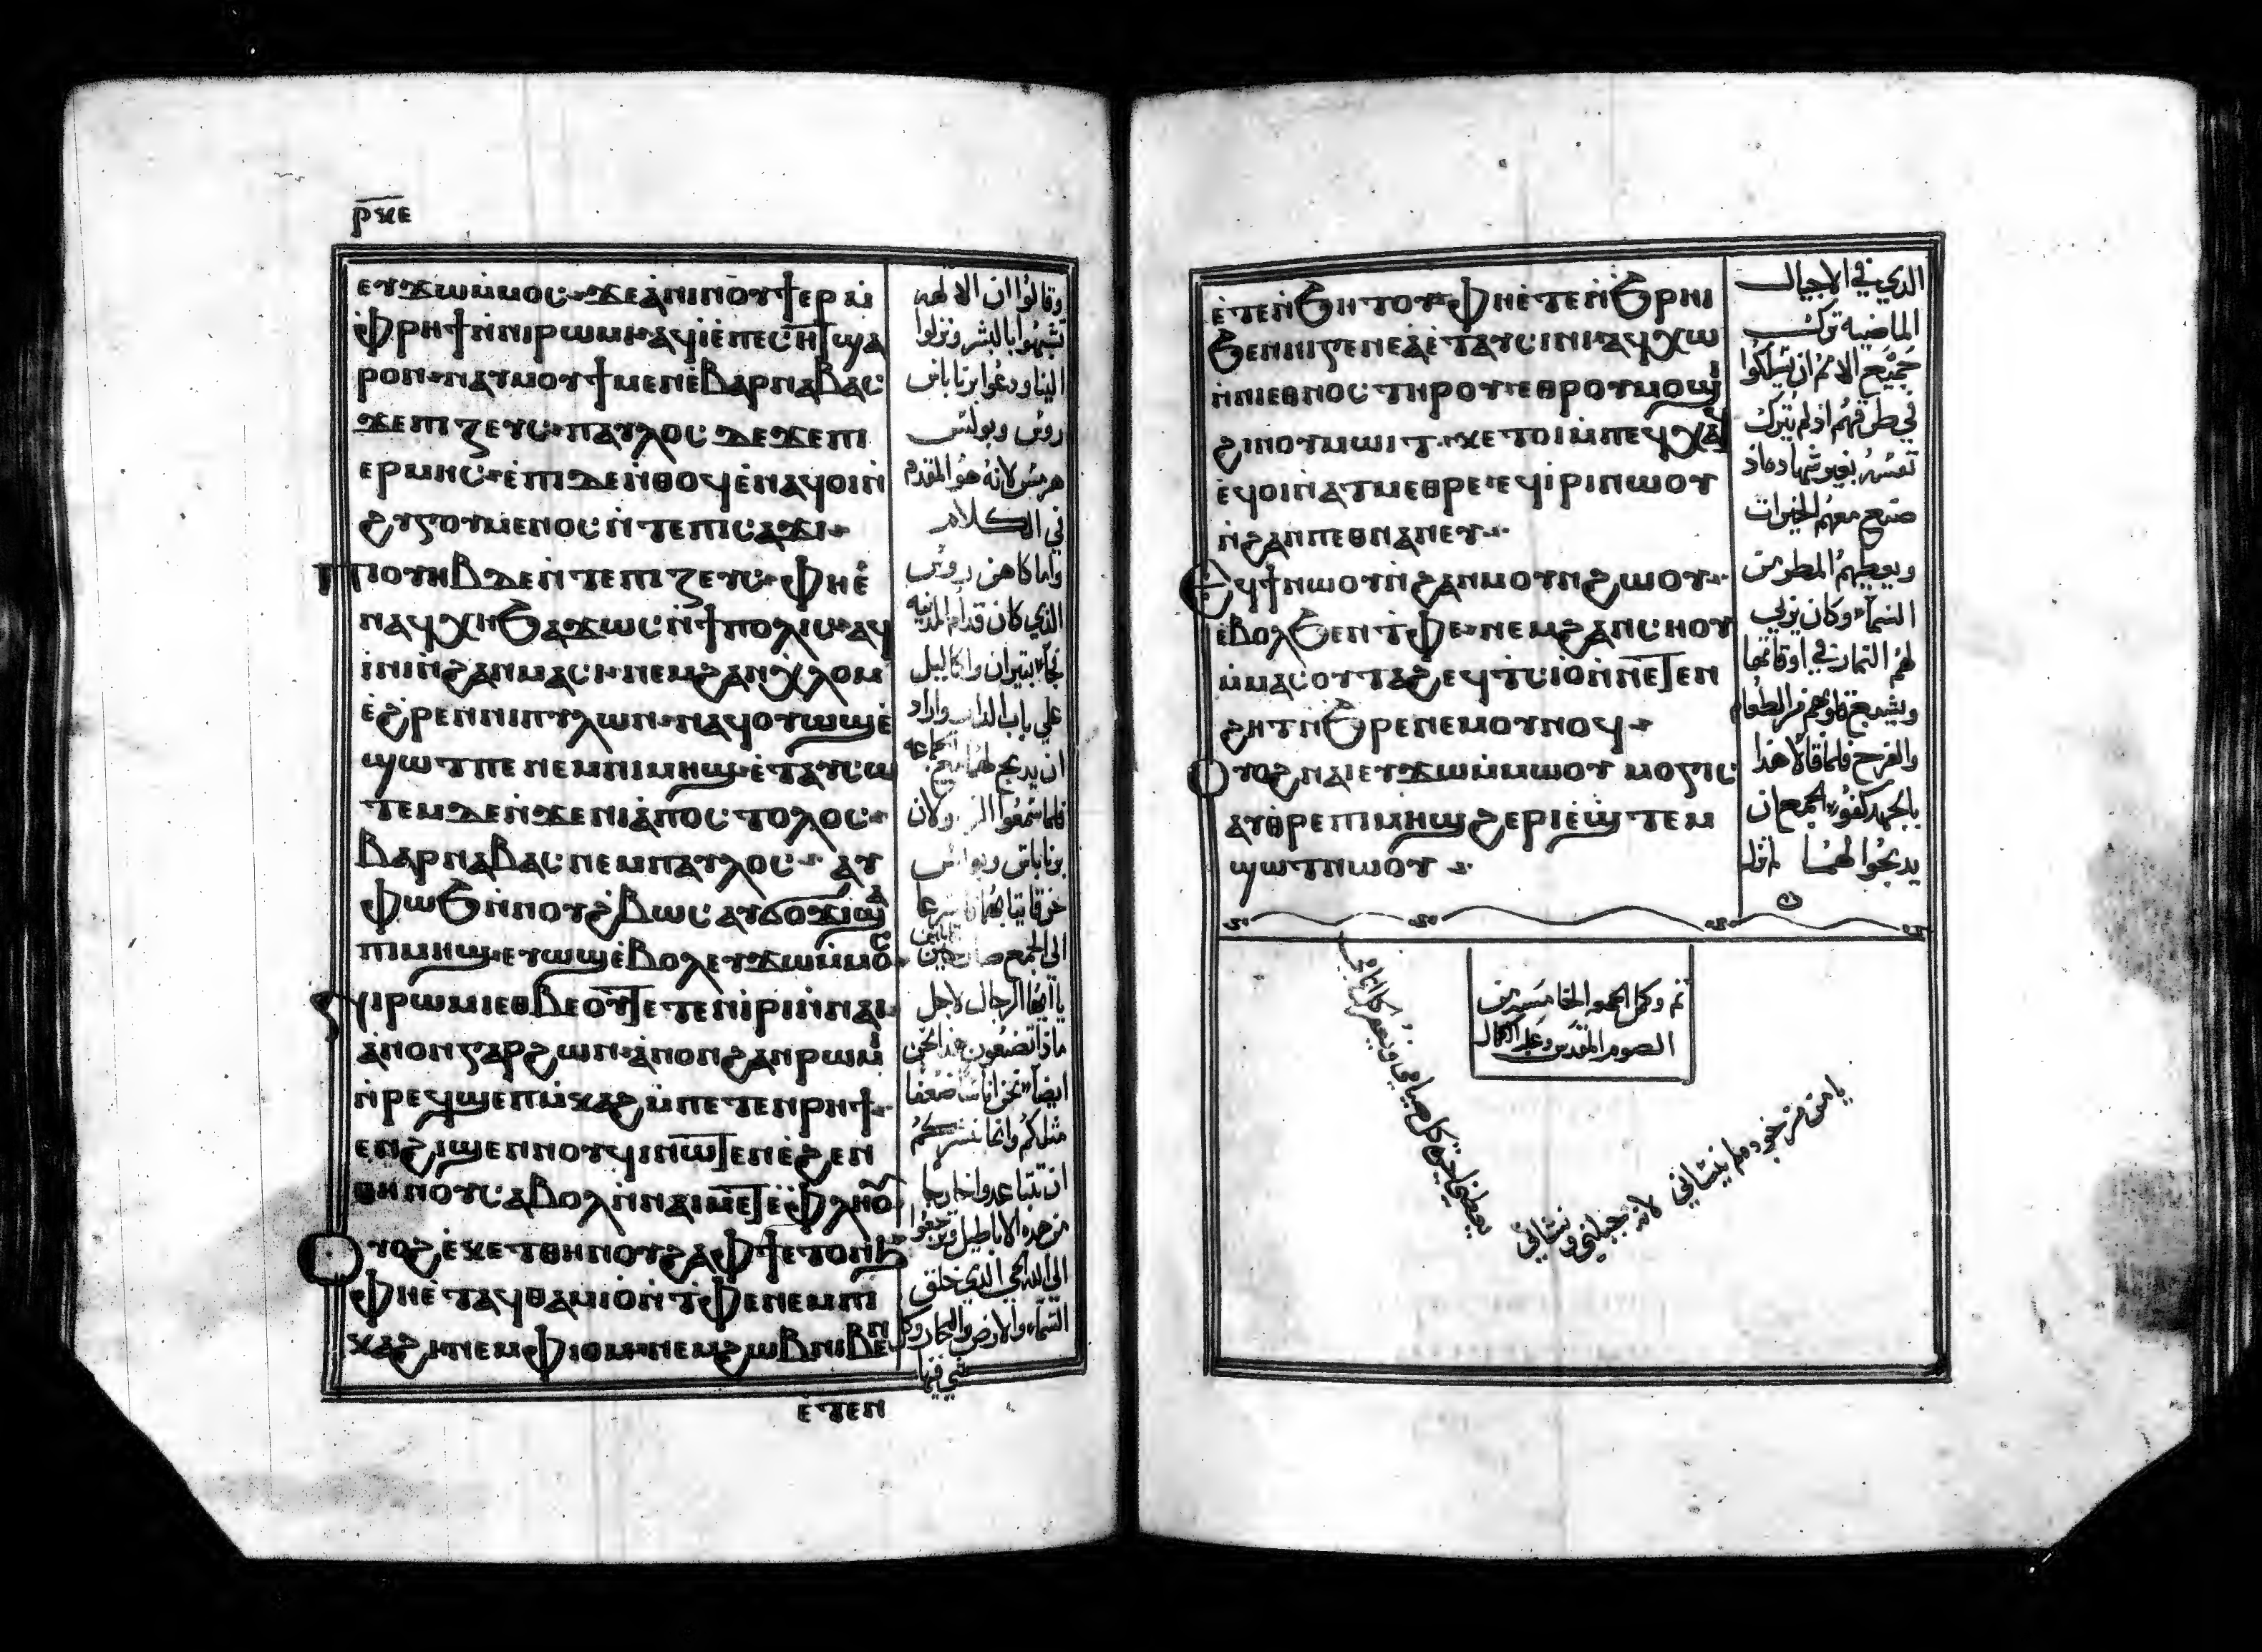 ⲣⲝⲉ
ⲉⲩϫⲱⲙ̀ⲙⲟⲥ ϫⲉⲁ̀ⲛⲓⲛⲟⲩϯ ⲉⲣ ⲙ̀
ⲫⲣⲏϯ ⲛ̀ⲛⲓⲣⲱⲙⲓ ⲁⲩⲓ̀ ⲉ̀ⲡⲉⲥⲏⲧ ϣⲁ
ⲣⲟⲛ ⲛⲁⲩⲙⲟⲩϯ ⲙⲉⲛ ⲉ̀ⲃⲁⲣⲛⲁⲃⲁⲥ
ϫⲉ ⲡⲓⲍⲉⲩⲥ ⲡⲁⲩⲗⲟⲥ ⲇⲉ ϫⲉ ⲡⲓ
ⲉⲣⲙⲏⲥ ⲉ̀ⲡⲓⲇⲉ ⲛ̀ⲑⲟϥ ⲉ̀ⲛⲁϥⲟⲓ ⲛ̀
ϩⲩⲅⲟⲩⲙⲉⲛⲟⲥ ⲛ̀ⲧⲉ ⲡⲓⲥⲁϫⲓ
ⲡⲓⲟⲩⲏⲃ ⲇⲉ ⲛ̀ⲧⲉ ⲡⲓⲍⲉⲩⲥ ⲫⲏ ⲉ̀
ⲛⲁϥⲭⲏ ϧⲁϫⲱⲥ ⲛ̀ϯⲡⲟⲗⲓⲥ ⲁϥ
ⲓ̀ⲛⲓ ⲛ̀ϩⲁⲛⲙⲁⲥⲓ ⲛⲉⲙ ϩⲁⲛⲭⲗⲟⲙ
ⲉ̀ϩⲣⲉⲛ ⲛⲓⲡⲩⲗⲱⲛ ⲛⲁϥⲟⲩⲱϣ ⲉ̀
ϣⲱⲧ ⲡⲉ ⲛⲉⲙ ⲡⲓⲙⲏϣ ⲉ̀ⲧⲁⲩⲥⲱ
ⲧⲉⲙ ⲇⲉ ⲛ̀ϫⲉ ⲛⲓⲁ̀ⲡⲟⲥⲧⲟⲗⲟⲥ
ⲃⲁⲣⲛⲁⲃⲁⲥ ⲛⲉⲙ ⲡⲁⲩⲗⲟⲥ ⲁⲩ
ⲫⲱϧ ⲛ̀ⲛⲟⲩϩⲃⲱⲥ ⲁⲩϭⲟϫⲓ ϣⲁ
ⲡⲓⲙⲏϣ ⲉⲩⲱϣ ⲉ̀ⲃⲟⲗ ⲉⲩϫⲱⲙ̀ⲙⲟⲥ
ⲛⲓⲣⲱⲙⲓ ⲉⲑⲃⲉ ⲟⲩ ⲧⲉⲧⲉⲛⲓⲣⲓ ⲛ̀ⲛⲁⲓ
ⲁ̀ⲛⲟⲛ ⲅⲁⲣ ϩⲱⲛ ⲁ̀ⲛⲟⲛ ϩⲁⲛⲣⲱⲙⲓ
ⲛ̀ⲣⲉϥϣⲉⲡⲙ̀ⲕⲁϩ ⲙ̀ⲡⲉⲧⲉⲛⲣⲏϯ
ⲉⲛϩⲓϣⲉⲛⲛⲟⲩϥⲓ ⲛⲱⲧⲉⲛ ⲉ̀ϩⲉⲛ
ⲑⲏⲛⲟⲩ ⲥⲁⲃⲟⲗ ⲛ̀ⲛⲁⲓⲙⲉⲧⲉ̀ⲫⲗⲏⲟⲩ
ⲟⲩⲟϩ ⲉ̀ⲕⲉⲧ ⲑⲏⲛⲟⲩ ϩⲁ ⲫϯ ⲉⲧⲟⲛϧ
ⲫⲏ ⲉ̀ⲧⲁϥⲑⲁⲙⲓⲟ̀ ⲛ̀ⲧ̀ⲫⲉ ⲛⲉⲙ ⲡⲓ
ⲕⲁϩⲓ ⲛⲉⲙ ⲫⲓⲟⲙ ⲛⲉⲙ ϩⲱⲃ ⲛⲓⲃⲉⲛ
ⲉ̀ⲧⲉⲛ
وقالوا ان الالهه
تشبهوا بالبشر ونزلوا
الينا ودعوا برنا باس
روس وبولس
هرمس لانه هو المقدم
في الكلام
واما كاهن روس
الذي كان قدام المدنيه
فجاء بتيران واكاليل
علي باب الدار واراد
ان يدبح لهما مع الجماعه
فلما سمعوا الرسولان
برنا باس وبولس
خرقا تيابهما واسرعا
الى الجمع صارخين قايلين
يا ايها الرجال لاجل
ماذا تصنعون هذا نحن
ايضا نحن اناسا ضعفا
مثلكم وانما نبشركم
ان تتباعدوا خارجا
من هذه الاباطيل وترجعوا
الى الله الحي الذي خلق
السماء والارض والبحار وكل
شي فيها
ⲉ̀ⲧⲉⲛ̀ϧⲏⲧⲟⲩ ⲫⲏ ⲉ̀ⲧⲉⲛ̀ϧⲣⲏⲓ
ϧⲉⲛ ⲛⲓⲅⲉⲛⲉⲁ̀ ⲉ̀ⲧⲁⲩⲥⲓⲛⲓ ⲁϥⲭⲱ
ⲛ̀ⲛⲓⲉⲑⲛⲟⲥ ⲧⲏⲣⲟⲩ ⲉⲑⲣⲟⲩⲙⲟϣⲓ
ϩⲓ ⲛⲟⲩⲙⲱⲓⲧ ⲕⲉⲧⲟⲓ ⲙ̀ⲡⲉϥⲭⲁϥ
ⲉϥⲟⲓ ⲛ̀ⲁⲧⲙⲉⲑⲣⲉ ⲉϥⲓ̀ⲣⲓ ⲛⲱⲟⲩ
ⲛ̀ϩⲁⲛⲡⲉⲑⲛⲁⲛⲉⲩ
ⲉϥϯ ⲛⲱⲟⲩ ⲛ̀ϩⲁⲛⲙⲟⲩⲛϩⲱⲟⲩ
ⲉ̀ⲃⲟⲗϧⲉⲛ ⲧ̀ⲫⲉ ⲛⲉⲙ ϩⲁⲛⲥⲏⲟⲩ
ⲙ̀ⲙⲁⲥⲟⲩⲧⲁϩ ⲉϥⲧ̀ⲥⲓⲟ̀ ⲛ̀ⲛⲉⲧⲉⲛ
ϩⲏⲧ ⲛ̀ϧⲣⲉ ⲛⲉⲙ ⲟⲩⲛⲟϥ
ⲟⲩⲟϩ ⲛⲁⲓ ⲉⲩϫⲱ ⲙ̀ⲙⲱⲟⲩ ⲙⲟⲅⲓⲥ
ⲁⲩⲑⲣⲉ ⲡⲓⲙⲏϣ ϩⲉⲣⲓ ⲉ̀ϣⲧⲉⲙ
ϣⲱⲧ ⲛⲱⲟⲩ
الذي في الاجيال
الماضيه ترك
جميع الامم ان يسلكوا
في طرقهم اذ لم يترك
نفسه بغير شهاده اذ
صنع معهم الخيرات
ويعطيهم المطر من
السماء وكان يربي
لهم الثمار في اوقاتها
ويشبع قلوبهم من الطعام
والفرح فلما قالا هذا
بالجهد كفوا الجمع ان
يدبحوا لهما
تم وكمل الجمعه الخامسه من
الصوم المقدس وعلى الكمال
يا من من جوده لم ينساني
لانه جبلني ونشاني